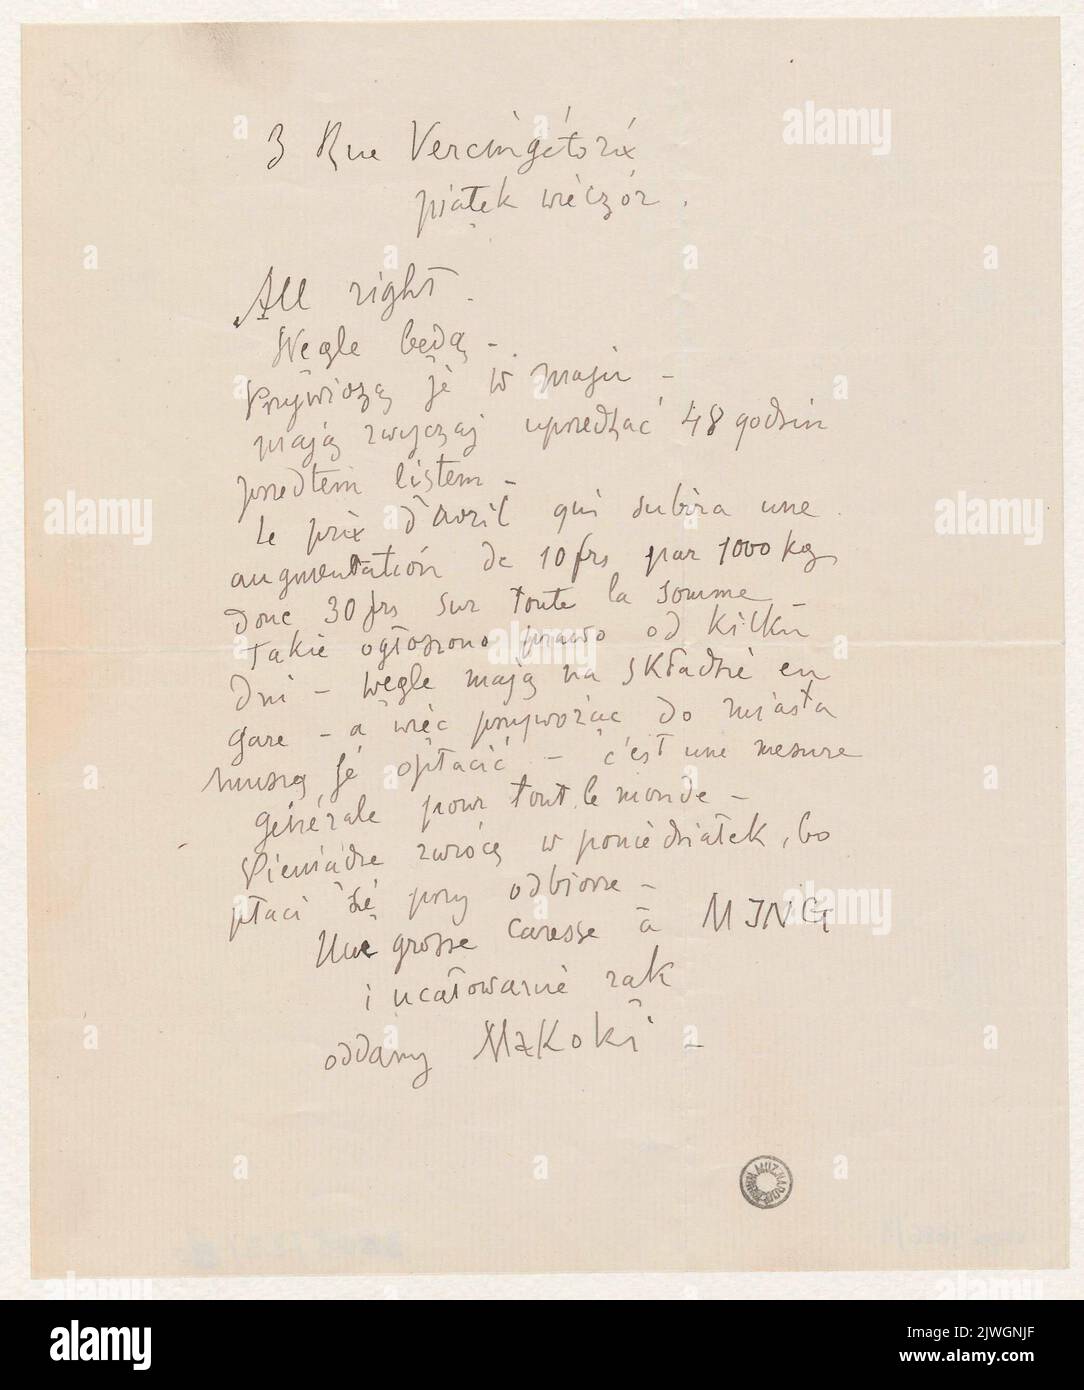 3 Rue Vercingétorix
piątek wieczór.
All right.
Węgle będą –
Przywiozą je w maju –
mają zwyczaj uprzedzać 48 godzin
przedtem listem –
Le prix d'avril qui subira une
augmentation de 10 frs par 1000 kg
donc 30 frs sur toute la somme
Takie ogłoszono prawo od kilku
dni – węgle mają na składzie en
gare – a więc przywożąc do miasta
muszą je opłacić – c'est une mesure
générale pour tout le monde –
Pieniądze zwrócę w poniedziałek, bo
płaci się przy odbiorze –
Une grosse caresse à MING
i ucałowanie rąk
oddany –
alamy
a
alamy
Image ID: 2JWGNJF
www.alamy.com